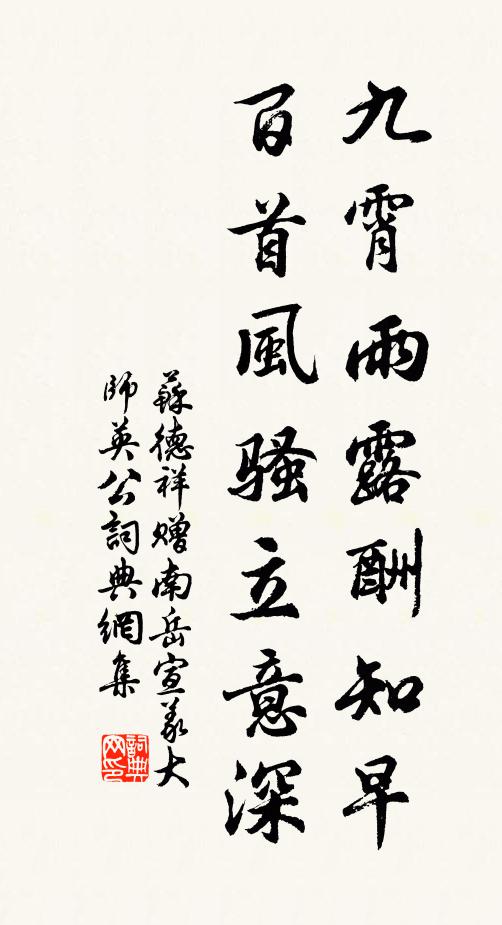 九霄雨露酬知早
百首風騷立意深
蘇德祥贈南岳宣義大
師英公詞典網集
詞典
网印